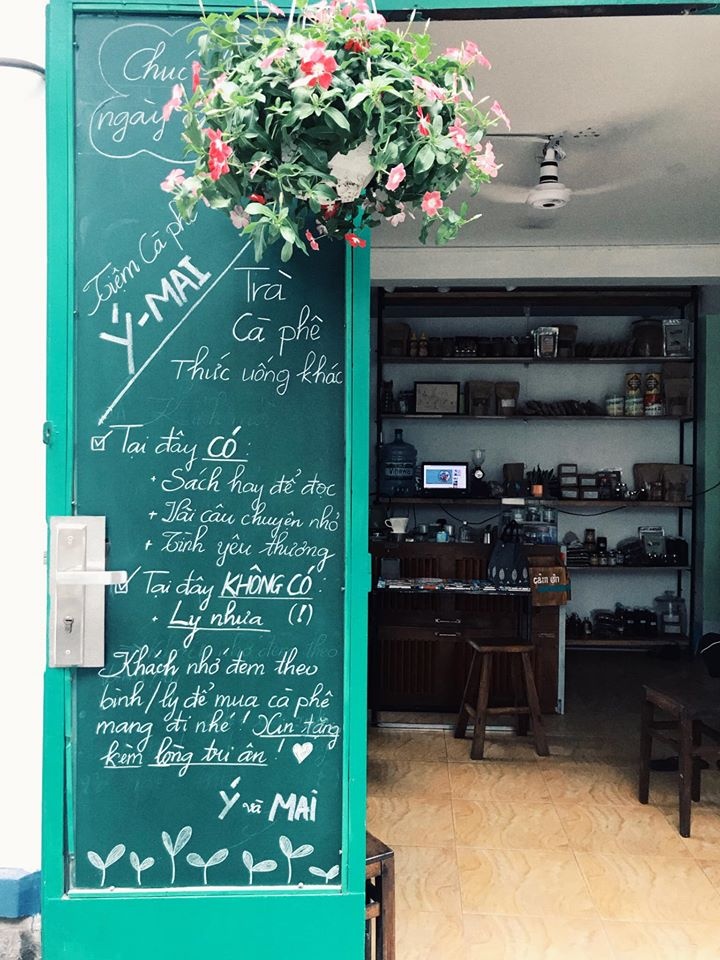 Chúc
ngày
Tiệm Cà phê
Ý-MAI
Trà
Cà phê
Thức uống khác
Tại đây CÓ:
+ Sách hay để đọc
+ Vài câu chuyện nhỏ
+ Tình yêu thương
Tại đây KHÔNG CÓ:
+ Ly nhựa (!)
Khách nhớ đem theo
bình/ly để mua cà phê
mang đi nhé! Xin tặng
kèm lòng tri ân!
Ý và MAI
cảm ơn